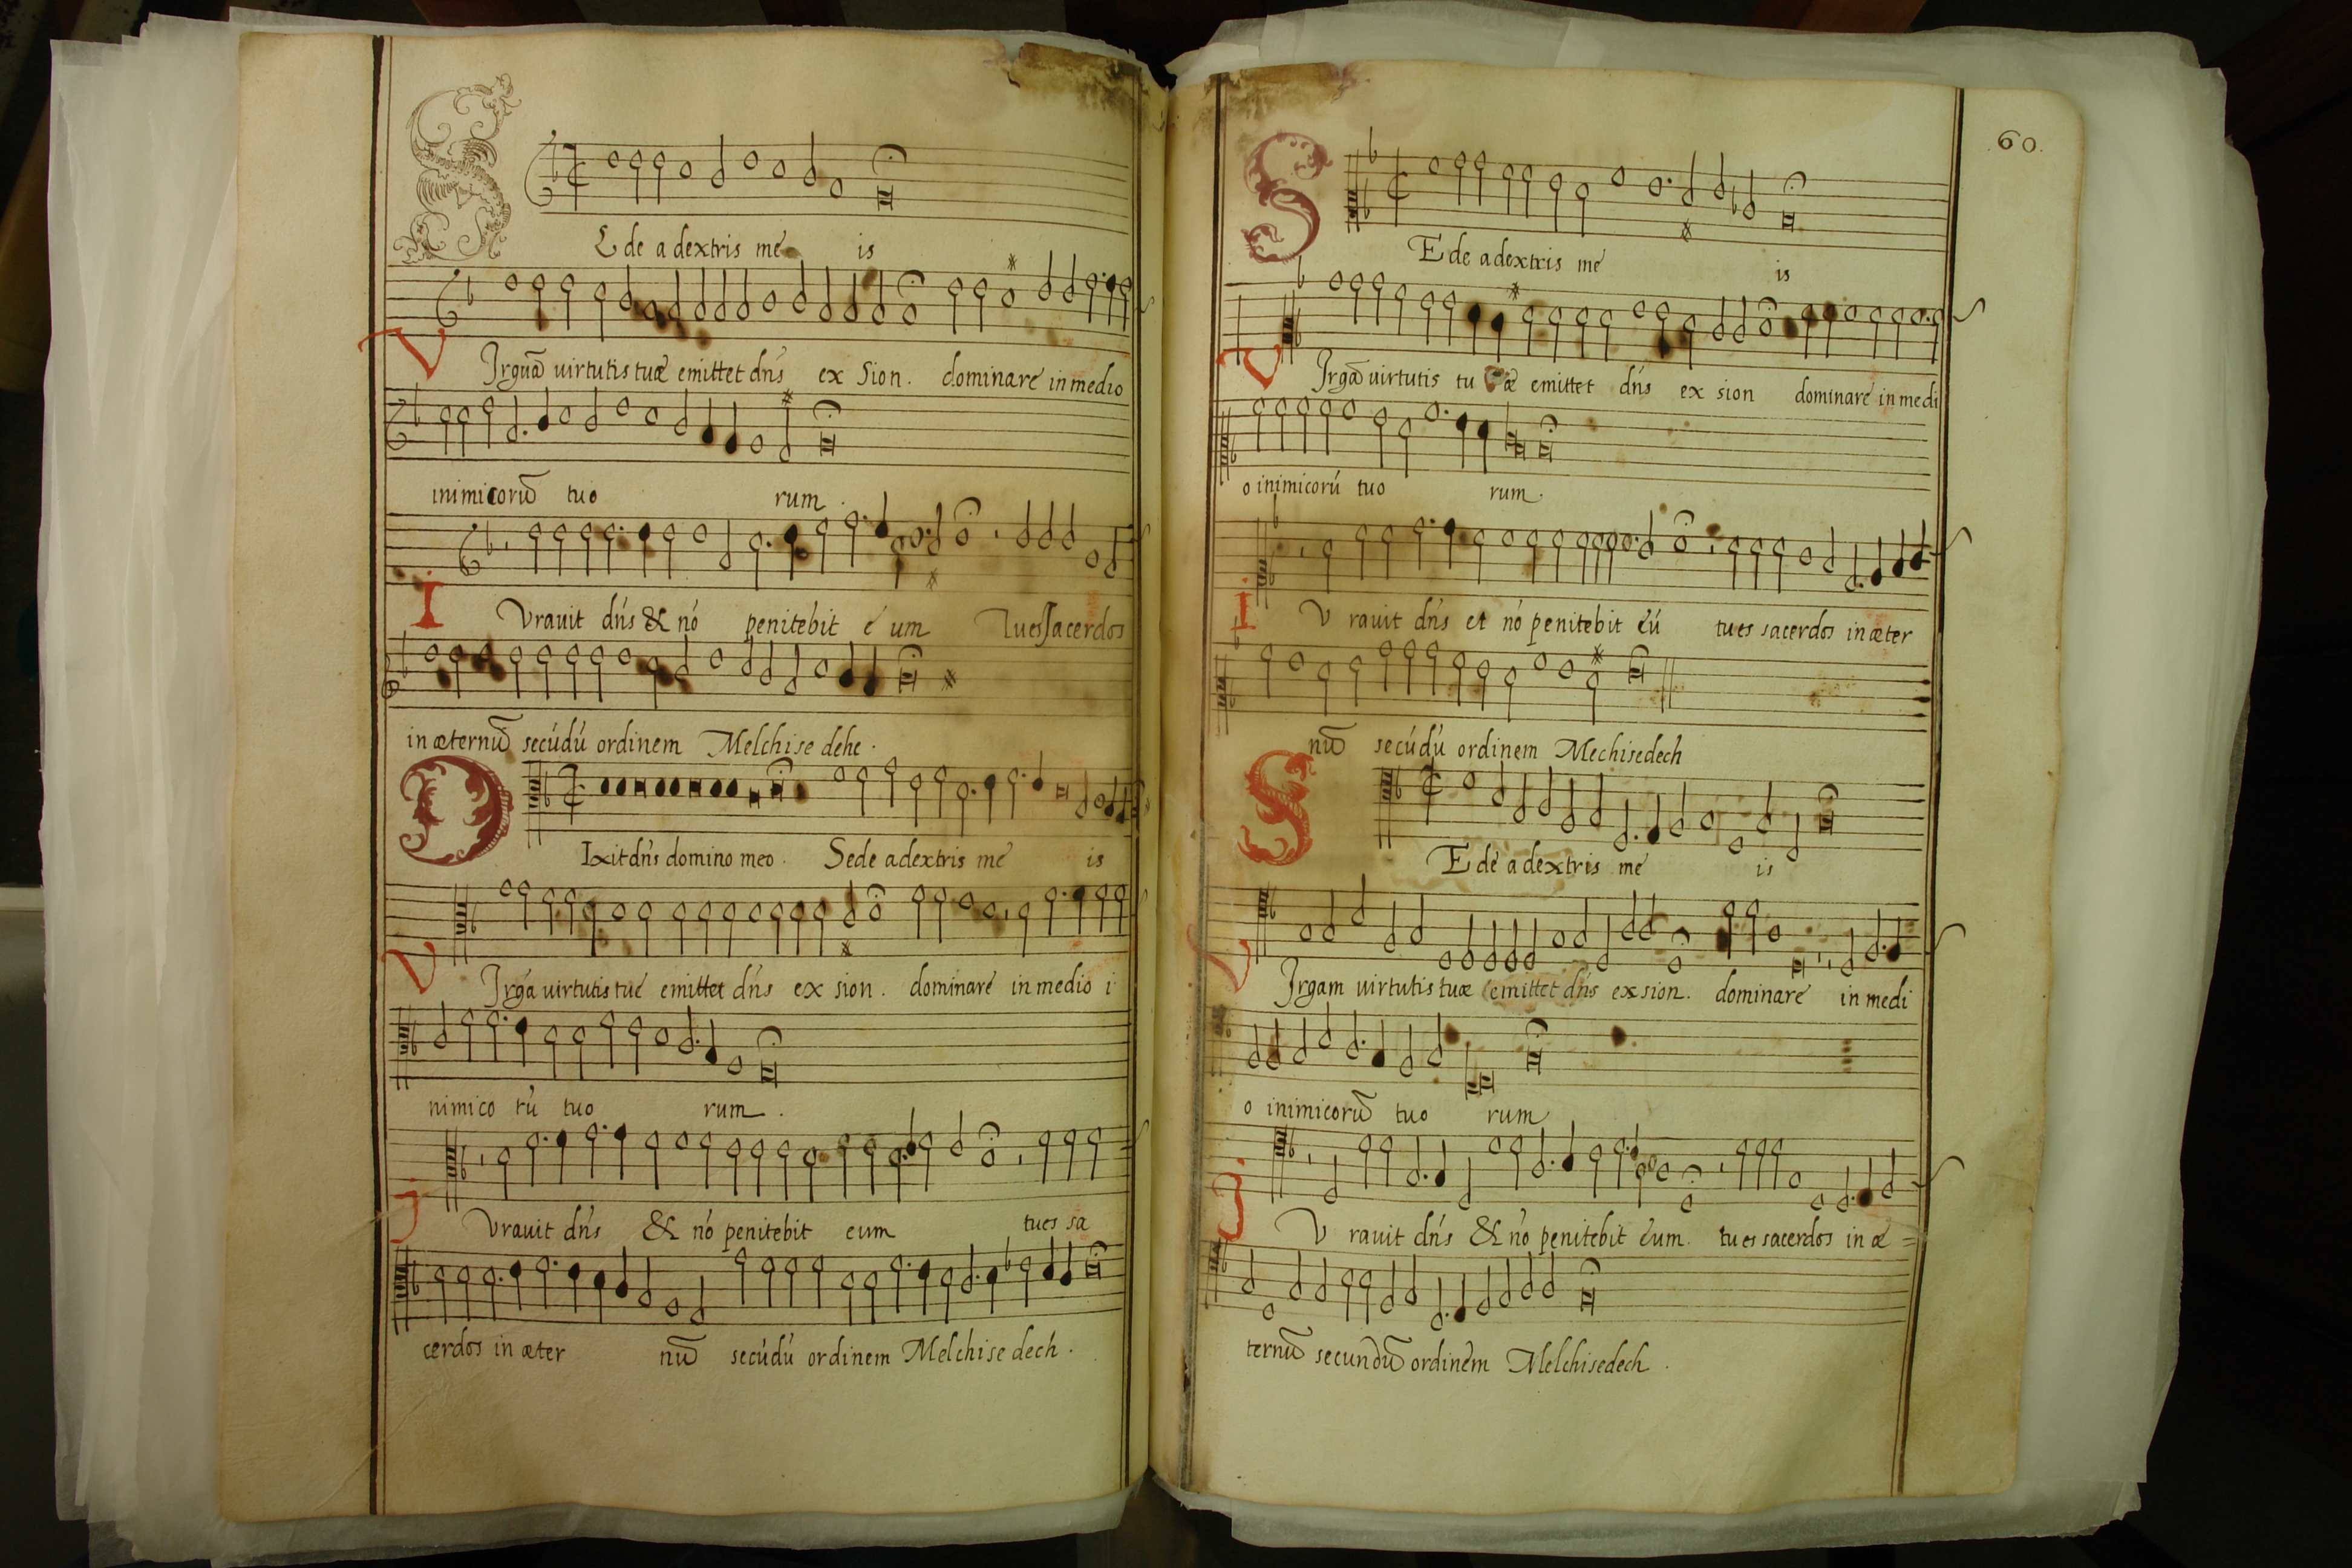 SEde a dextris me is
VIrguã uirtutis tuæ emittet dn̄s ex Sion. dominare in medio
inimicorũ tuo rum.
IVrauit dn̄s & nó penitebit é um Tu es sacerdos
in æternũ secúdú ordinem Melchise dehe.
DIxit dn̄s domino meo. Sede a dextris me is
VIrgá uirtutis tué emittet dn̄s ex sion. dominaré in medio i
nimico rú tuo rum.
IVrauit dn̄s & nó penitebit eum tu es sa
cerdos in æter nũ secúdú ordinem Melchise dech.
60.
SEde a dextris me is
VIrgã uirtutis tu æ emittet dn̄s ex sion dominare in medi
o inimicorú tuo rum.
IV rauit dn̄s et nó penitebit eú tu es sacerdos in æter
nũ secúdú ordinem Mechisedech
SEde a dextris me is
VIrgam uirtutis tuæ emittet dn̄s ex sion. dominare in medi
o inimicorũ tuo rum
IV rauit dn̄s & nó penitebit eum. tu es sacerdos in æ=
ternũ secundũ ordinem Melchisedech.